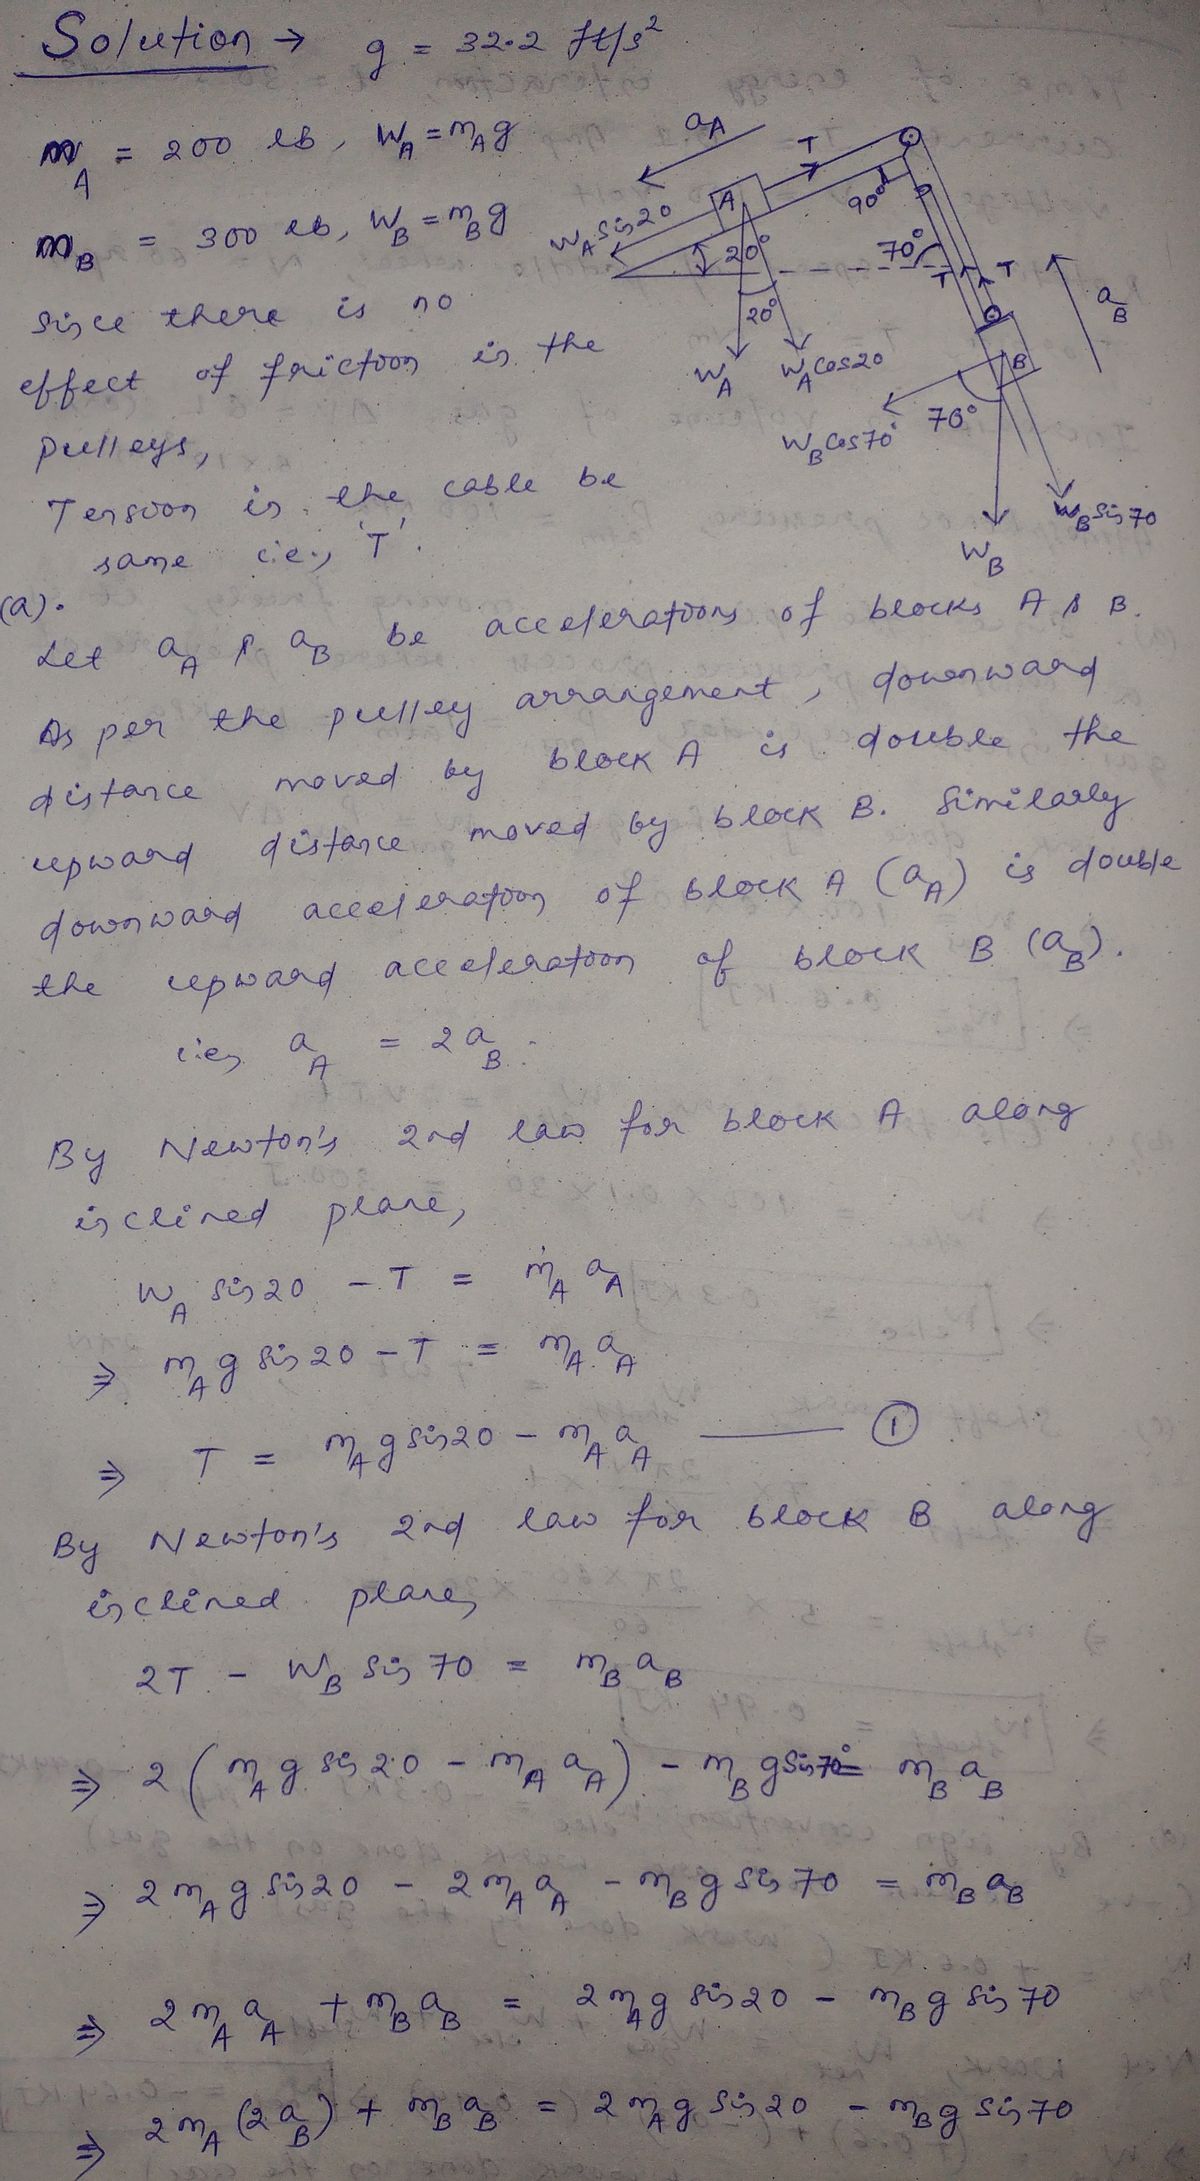 Solution → g = 32.2 ft/s²
m_A = 200 lb, W_A = m_A g
m_B = 300 lb, W_B = m_B g
Since there is no
effect of friction in the
pulleys,
Tension in the cable be
same i.e., 'T'.
a_A
T
A
W_A Sin20
20°
90°
70°
T
T
a_B
20°
W_A
W_A Cos20
B
70°
W_B Cos70°
W_B Sin70
W_B
(a).
Let a_A & a_B be accelerations of blocks A & B.
As per the pulley arrangement, downward
distance moved by block A is double the
upward distance moved by block B. Similarly
downward acceleration of block A (a_A) is double
the upward acceleration of block B (a_B).
i.e, a_A = 2a_B.
By Newton's 2nd law for block A along
inclined plane,
W_A sin20 - T = m_A a_A
⇒ m_A g sin20 - T = m_A a_A
⇒ T = m_A g sin20 - m_A a_A —— ①
By Newton's 2nd law for block B along
inclined plane,
2T - W_B sin70 = m_B a_B
⇒ 2(m_A g sin20 - m_A a_A) - m_B g sin70° = m_B a_B
⇒ 2m_A g sin20 - 2m_A a_A - m_B g sin70 = m_B a_B
⇒ 2m_A a_A + m_B a_B = 2m_A g sin20 - m_B g sin70
⇒ 2m_A (2a_B) + m_B a_B = 2m_A g sin20 - m_B g sin70